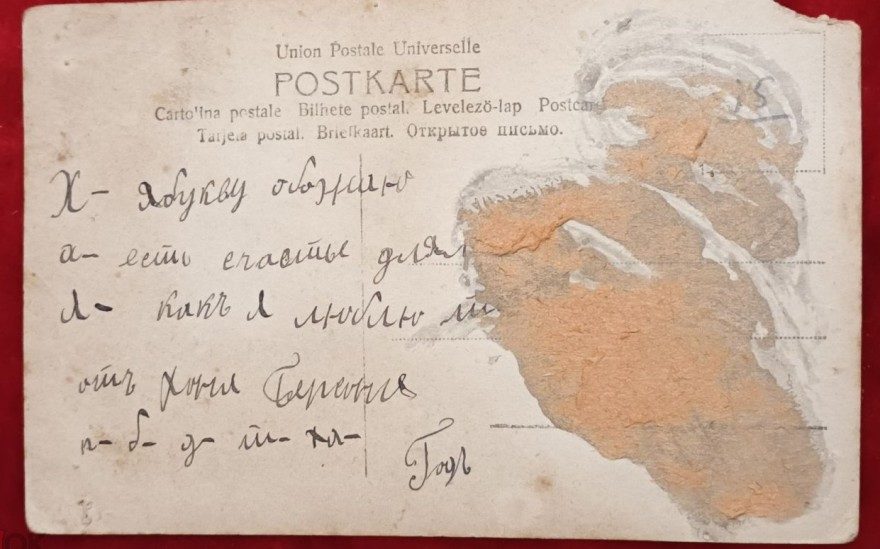 Union Postale Universelle
POSTKARTE
Cartolina postale Bilhete postal. Levelező-lap Postcard
Tarjeta postal. Briefkaart. Открытое письмо.
15
Х- Я букву обожаю
а- есть счастье для
я- какъ я люблю
отъ
п- б- д- т-
Годъ